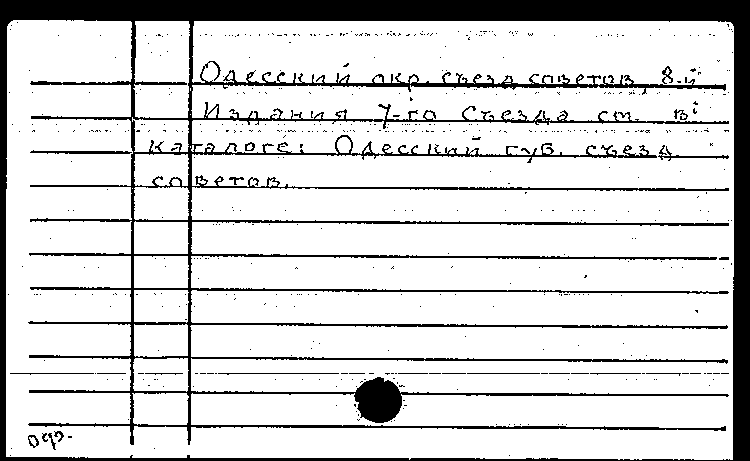 Одесский окр. съезд советов, 8-й
Издания 7-го Съезда см. в
каталоге: Одесский губ. съезд
советов.